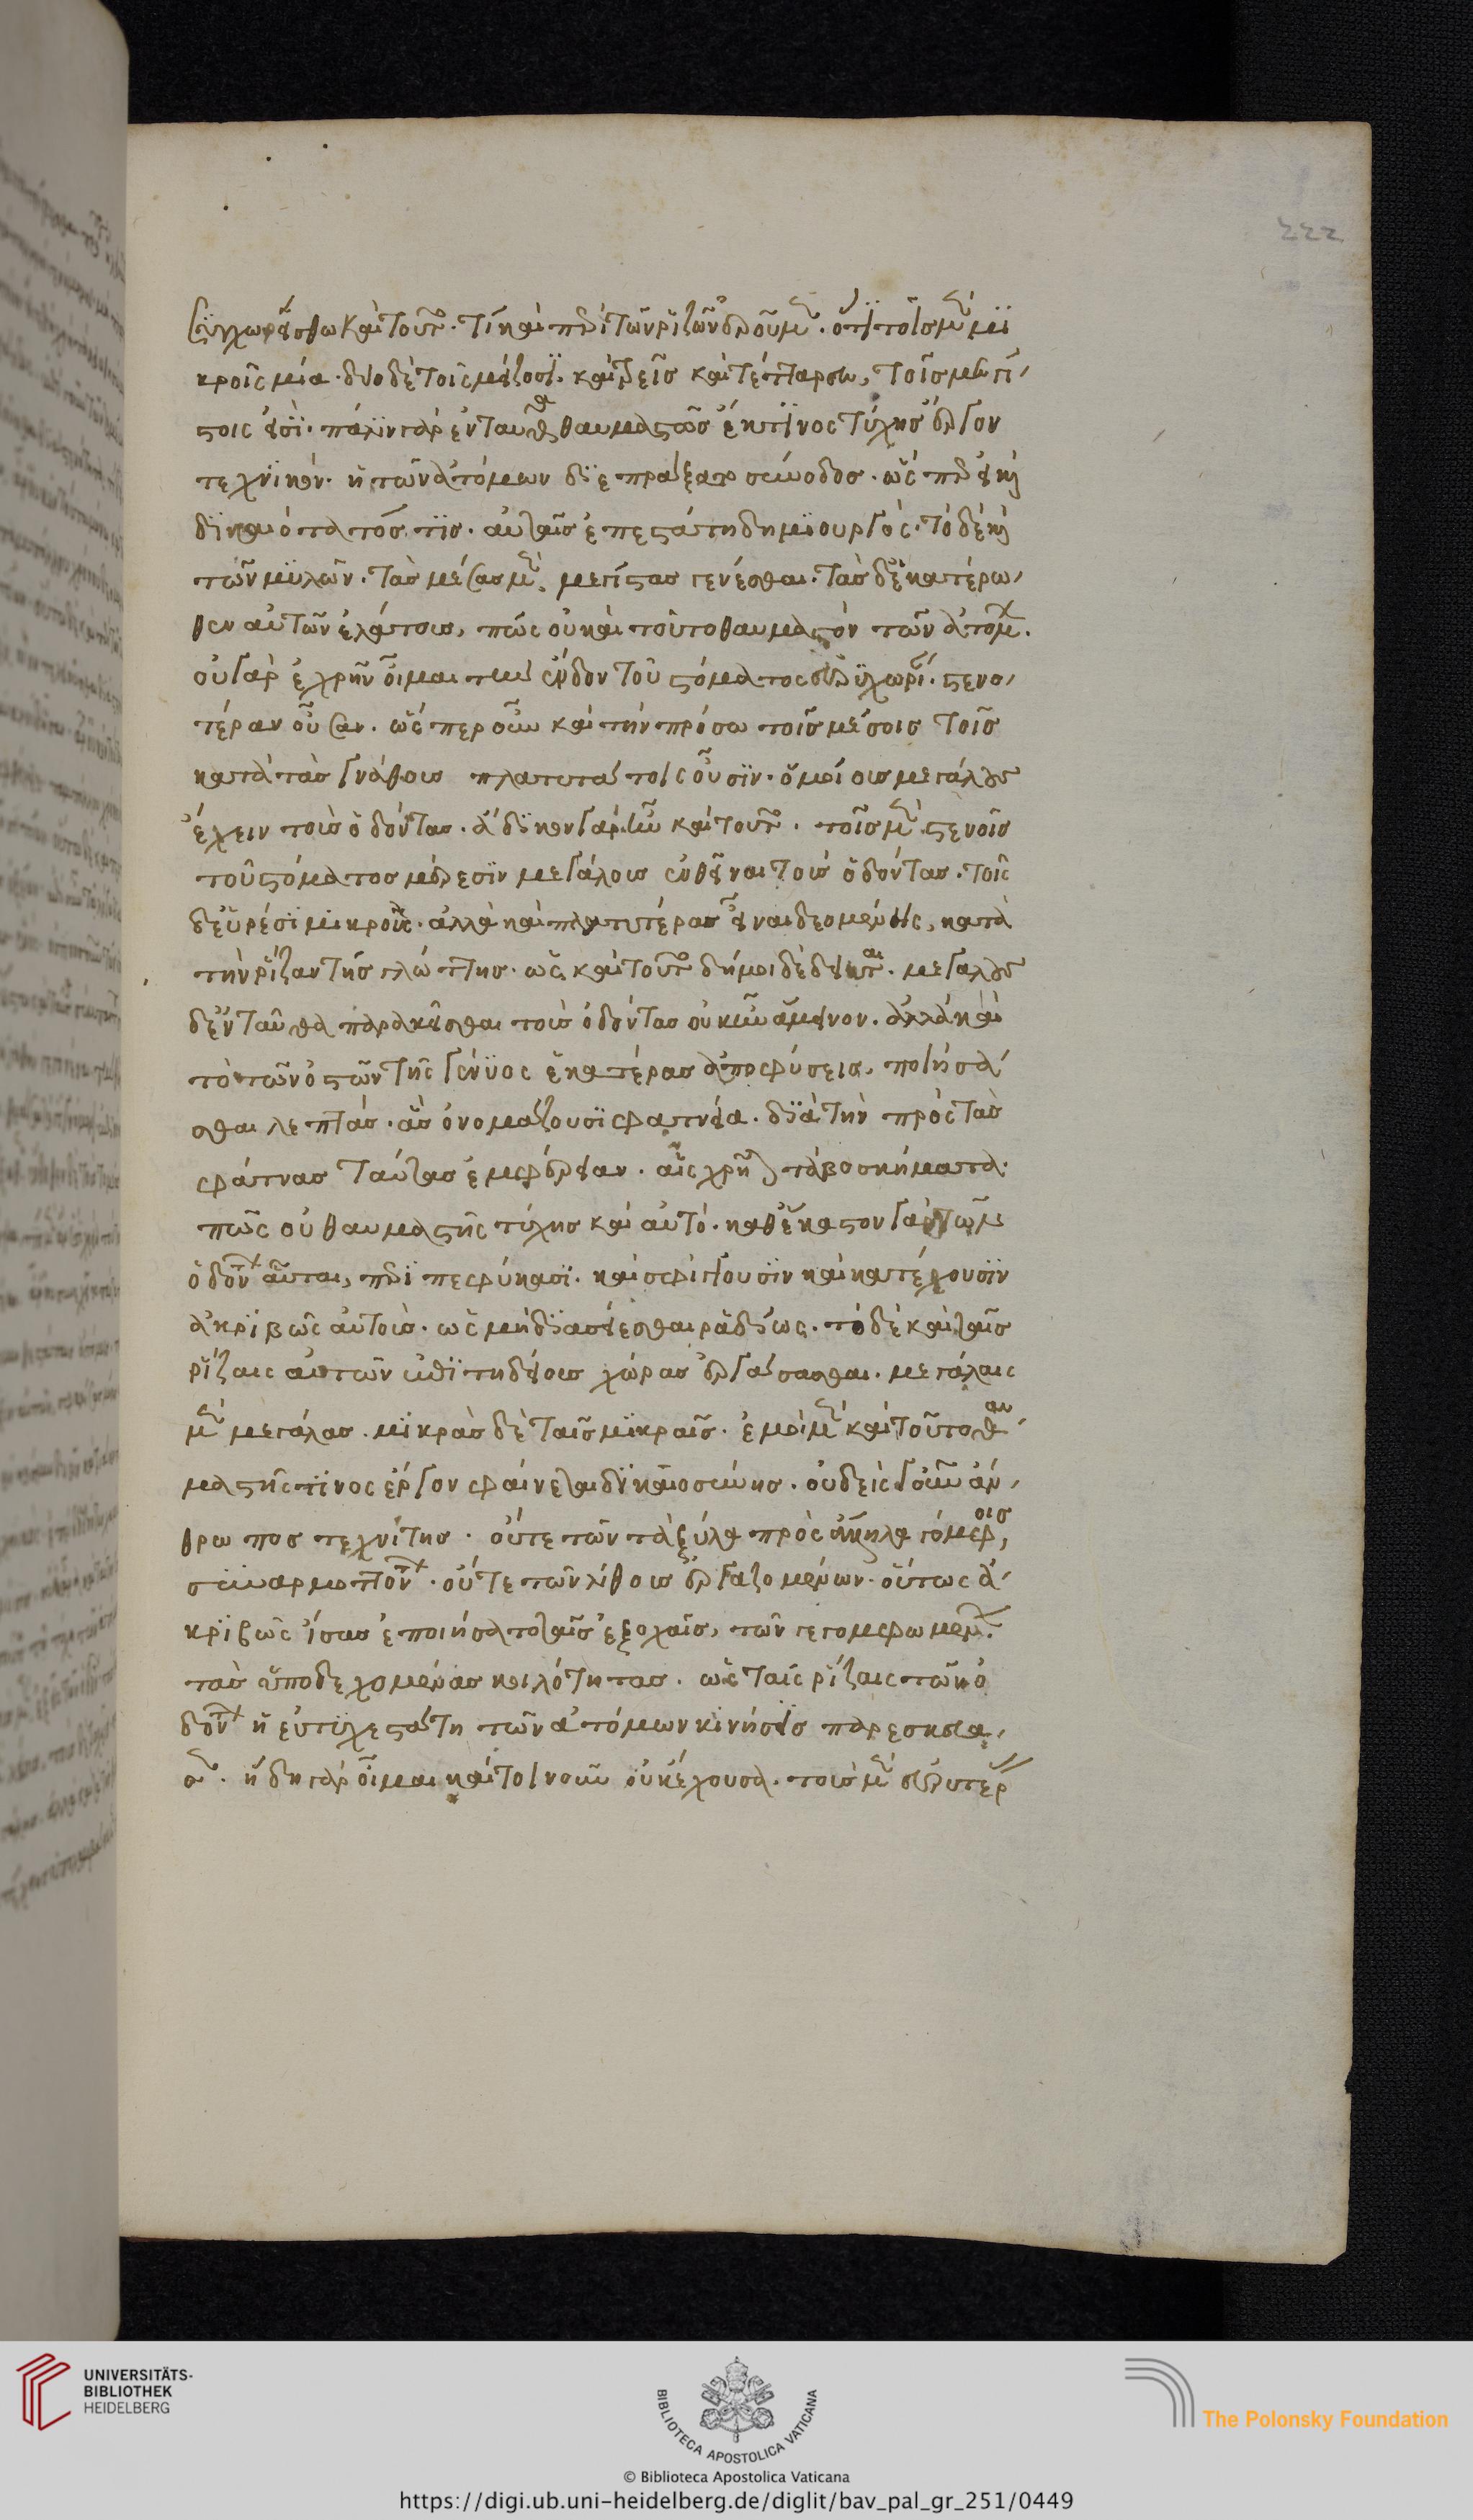 Συγχωρείσθω καὶ τοῦτο. τί καὶ περὶ τῶν ῥιζῶν ἐροῦμεν. ὅτι τοῖς μὲν μι
κροῖς μία. δύο δὲ τοῖς μείζοσι. καὶ τρεῖς καὶ τέτταρες, τοῖς μεγί
στοις εἰσί. πάλιν γὰρ ἐνταῦθα θαυμαστῶς ἔκ τινος τύχης ἔργον
τεχνικὸν. ἡ τῶν ἀτόμων διεπράξατο σύνοδος. ὥσπερ εἰ καὶ
δικαιότατός τις. αὐταῖς ἐπεστάτη δημιουργός. τὸ δὲ καὶ
τῶν μυλῶν. τὰς μέσας μὲν. μεγίστας γενέσθαι. τὰς δ' ἑκατέρω
θεν αὐτῶν ἐλάττους, πῶς οὐ καὶ τοῦτο θαυμαστὸν τῶν ἀτόμων.
οὐ γὰρ ἐχρῆν οἶμαι τὴν ἔνδον τοῦ στόματος εὐρυχωρίαν. στενο
τέραν οὖσαν. ὥσπερ οὖν καὶ τὴν πρόσω τοῖς μέσοις τοῖς
κατὰ τὰς γνάθους πλατυτάτοις οὖσιν. ὁμοίους μεγάλους
ἔχειν τοὺς ὀδόντας. ἄδικον γὰρ ἦν καὶ τοῦτο. τοῖς μὲν στενοῖς
τοῦ στόματος μέρεσιν μεγάλους ἐνθεῖναι τοὺς ὀδόντας. τοῖς
δ' εὐρέσι μικρούς. ἀλλὰ καὶ πλατυτέρας εἶναι δεομένης, κατὰ
τὴν ῥίζαν τῆς γλώττης. ὡς καὶ τοῦτο δή μοι δέδεικται. μεγάλους
δ' ἐνταῦθα παρακεῖσθαι τοὺς ὀδόντας οὐκ ἦν ἄμεινον. ἀλλὰ καὶ
τὸ τῶν ὀστῶν τῆς γένυος ἑκατέρας ἀποφύσεις, ποιήσα
σθαι λεπτάς. ἃς ὀνομάζουσι φατνία. διὰ τὴν πρὸς τὰς
φάτνας ταύτας ἐμφέρειαν. αἷς χρῆται τὰ βοσκήματα.
πῶς οὐ θαυμαστῆς τύχης καὶ αὐτό. καθ' ἕκαστον γὰρ τῶν
ὀδόντων αὗται, περιπεφύκασι. καὶ σφίγγουσιν καὶ κατέχουσιν
ἀκριβῶς αὐτοὺς. ὡς μὴ διασείεσθαι ῥαδίως. τὸ δὲ καὶ ταῖς
ῥίζαις αὐτῶν ἐπιτηδείους χώρας ἐργάσασθαι. μεγάλαις
μὲν μεγάλας. μικρὰς δὲ ταῖς μικραῖς. ἐμοὶ μὲν καὶ τοῦτο θαυ
μαστῆς τινος ἔργον φαίνεται δικαιοσύνης. οὐδεὶς γοῦν ἄν
θρωπος τεχνίτης. οὔτε τῶν τὰ ξύλα πρὸς ἄλληλα γόμφοις
συναρμοττόντων. οὔτε τῶν λίθους ἐργαζομένων. οὕτως ἀ
κριβῶς ἴσας ἐποιήσατο ταῖς ἐξοχαῖς, τῶν γεγομφωμένων.
τὰς ὑποδεχομένας κοιλότητας. ὡς ταῖς ῥίζαις τῶν ὀ
δόντων ἡ εὐτυχεστάτη τῶν ἀτόμων κίνησις παρεσκεύα
σεν. ᾔδει γὰρ οἶμαι καίτοι νοῦν οὐκ ἔχουσα. τοὺς μὲν εὐρυτέρ
222
UNIVERSITÄTS-
BIBLIOTHEK
HEIDELBERG
BIBLIOTECA APOSTOLICA VATICANA
The Polonsky Foundation
© Biblioteca Apostolica Vaticana
https://digi.ub.uni-heidelberg.de/diglit/bav_pal_gr_251/0449